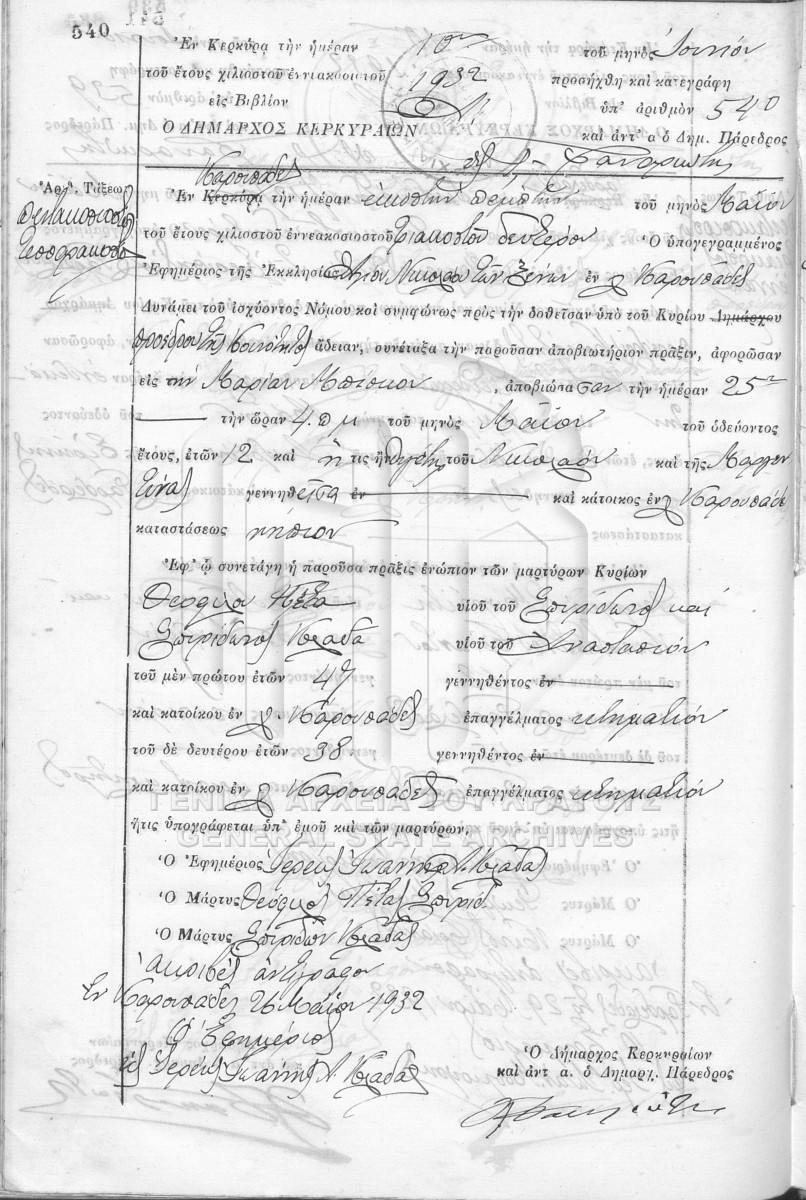 540
Ἐν Κερκύρᾳ τὴν ἡμέραν 10ην τοῦ μηνὸς Ἰουνίου
τοῦ ἔτους χιλιοστοῦ ἐννιακοσιοστοῦ 1932 προσήχθη καὶ κατεγράφη
εἰς Βιβλίον ὑπ' ἀριθμὸν 540
Ο ΔΗΜΑΡΧΟΣ ΚΕΡΚΥΡΑΙΩΝ καὶ ἀντ' α' ὁ Δημ. Πάρεδρος
Καρουσάδες
Ἀριθ. Τάξεως
Πεντακοσιοστὸς
Τεσσαρακοστὸς
Ἐν Κερκύρᾳ τὴν ἡμέραν εἰκοστὴν πέμπτην τοῦ μηνὸς Μαΐου
τοῦ ἔτους χιλιοστοῦ ἐννεακοσιοστοῦ τριακοστοῦ δευτέρου Ὁ ὑπογεγραμμένος
Ἐφημέριος τῆς Ἐκκλησίας Ἁγίου Νικολάου τῶν Ξένων ἐν Καρουσάδες
Δυνάμει τοῦ ἰσχύοντος Νόμου καὶ συμφώνως πρὸς τὴν δοθεῖσαν ὑπὸ τοῦ Κυρίου Δημάρχου
προέδρου τῆς Κοινότητος ἄδειαν, συνέταξα τὴν παροῦσαν ἀποβιωτήριον πρᾶξιν, ἀφορῶσαν
εἰς τὴν Μαρίαν, ἀποβιώσασαν τὴν ἡμέραν 25ην
τὴν ὥραν 4. π μ τοῦ μηνὸς Μαΐου τοῦ ὁδεύοντος
ἔτους, ἐτῶν 12 καὶ ἥτις ἦν θυγάτηρ τοῦ Νικολάου καὶ τῆς
γεννηθεῖσα ἐν καὶ κάτοικος ἐν Καρουσάδες
καταστάσεως νήπιον
Ἐφ' ᾧ συνετάγη ἡ παροῦσα πρᾶξις ἐνώπιον τῶν μαρτύρων Κυρίων
Πέτα υἱοῦ τοῦ Σπυρίδωνος καὶ
Σπυρίδωνος υἱοῦ τοῦ Ἀναστασίου
τοῦ μὲν πρώτου ἐτῶν 47 γεννηθέντος ἐν
καὶ κατοίκου ἐν Καρουσάδες ἐπαγγέλματος κτηματίου
τοῦ δὲ δευτέρου ἐτῶν 38 γεννηθέντος ἐν
καὶ κατοίκου ἐν Καρουσάδες ἐπαγγέλματος κτηματίου
ΓΕΝΙΚΑ ΑΡΧΕΙΑ ΤΟΥ ΚΡΑΤΟΥΣ
ἥτις ὑπογράφεται ὑπ' ἐμοῦ καὶ τῶν μαρτύρων,
GENERAL STATE ARCHIVES
Ὁ Ἐφημέριος Ἱερεὺς Ἰωάννης Α.
Ὁ Μάρτυς Πέτας Σπυρίδ.
Ὁ Μάρτυς Σπυρίδων
Ἀκριβὲς ἀντίγραφον
Ἐν Καρουσάδες 26 Μαΐου 1932
Ὁ Ἐφημέριος
Ἱερεὺς Ἰωάννης Α.
Ὁ Δήμαρχος Κερκυραίων
καὶ ἀντ α. ὁ Δημαρχ. Πάρεδρος